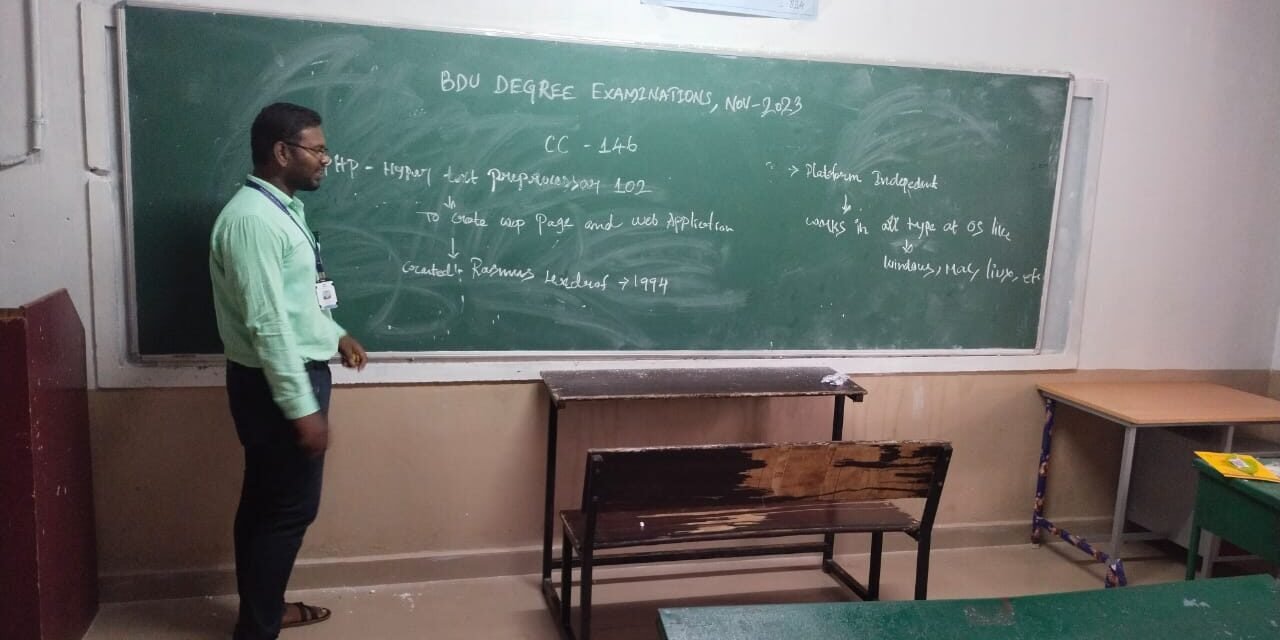 BDU DEGREE EXAMINATIONS, NOV-2023
CC - 146
PHP - Hyper text preprocessor 102
↓
To Crate wep Page and web Application
↓
Created: Rasmus Lexdrof → 1994
→ Platform Indepedent
↓
works in all type at OS like
↓
Windows, Mac, linux, etc